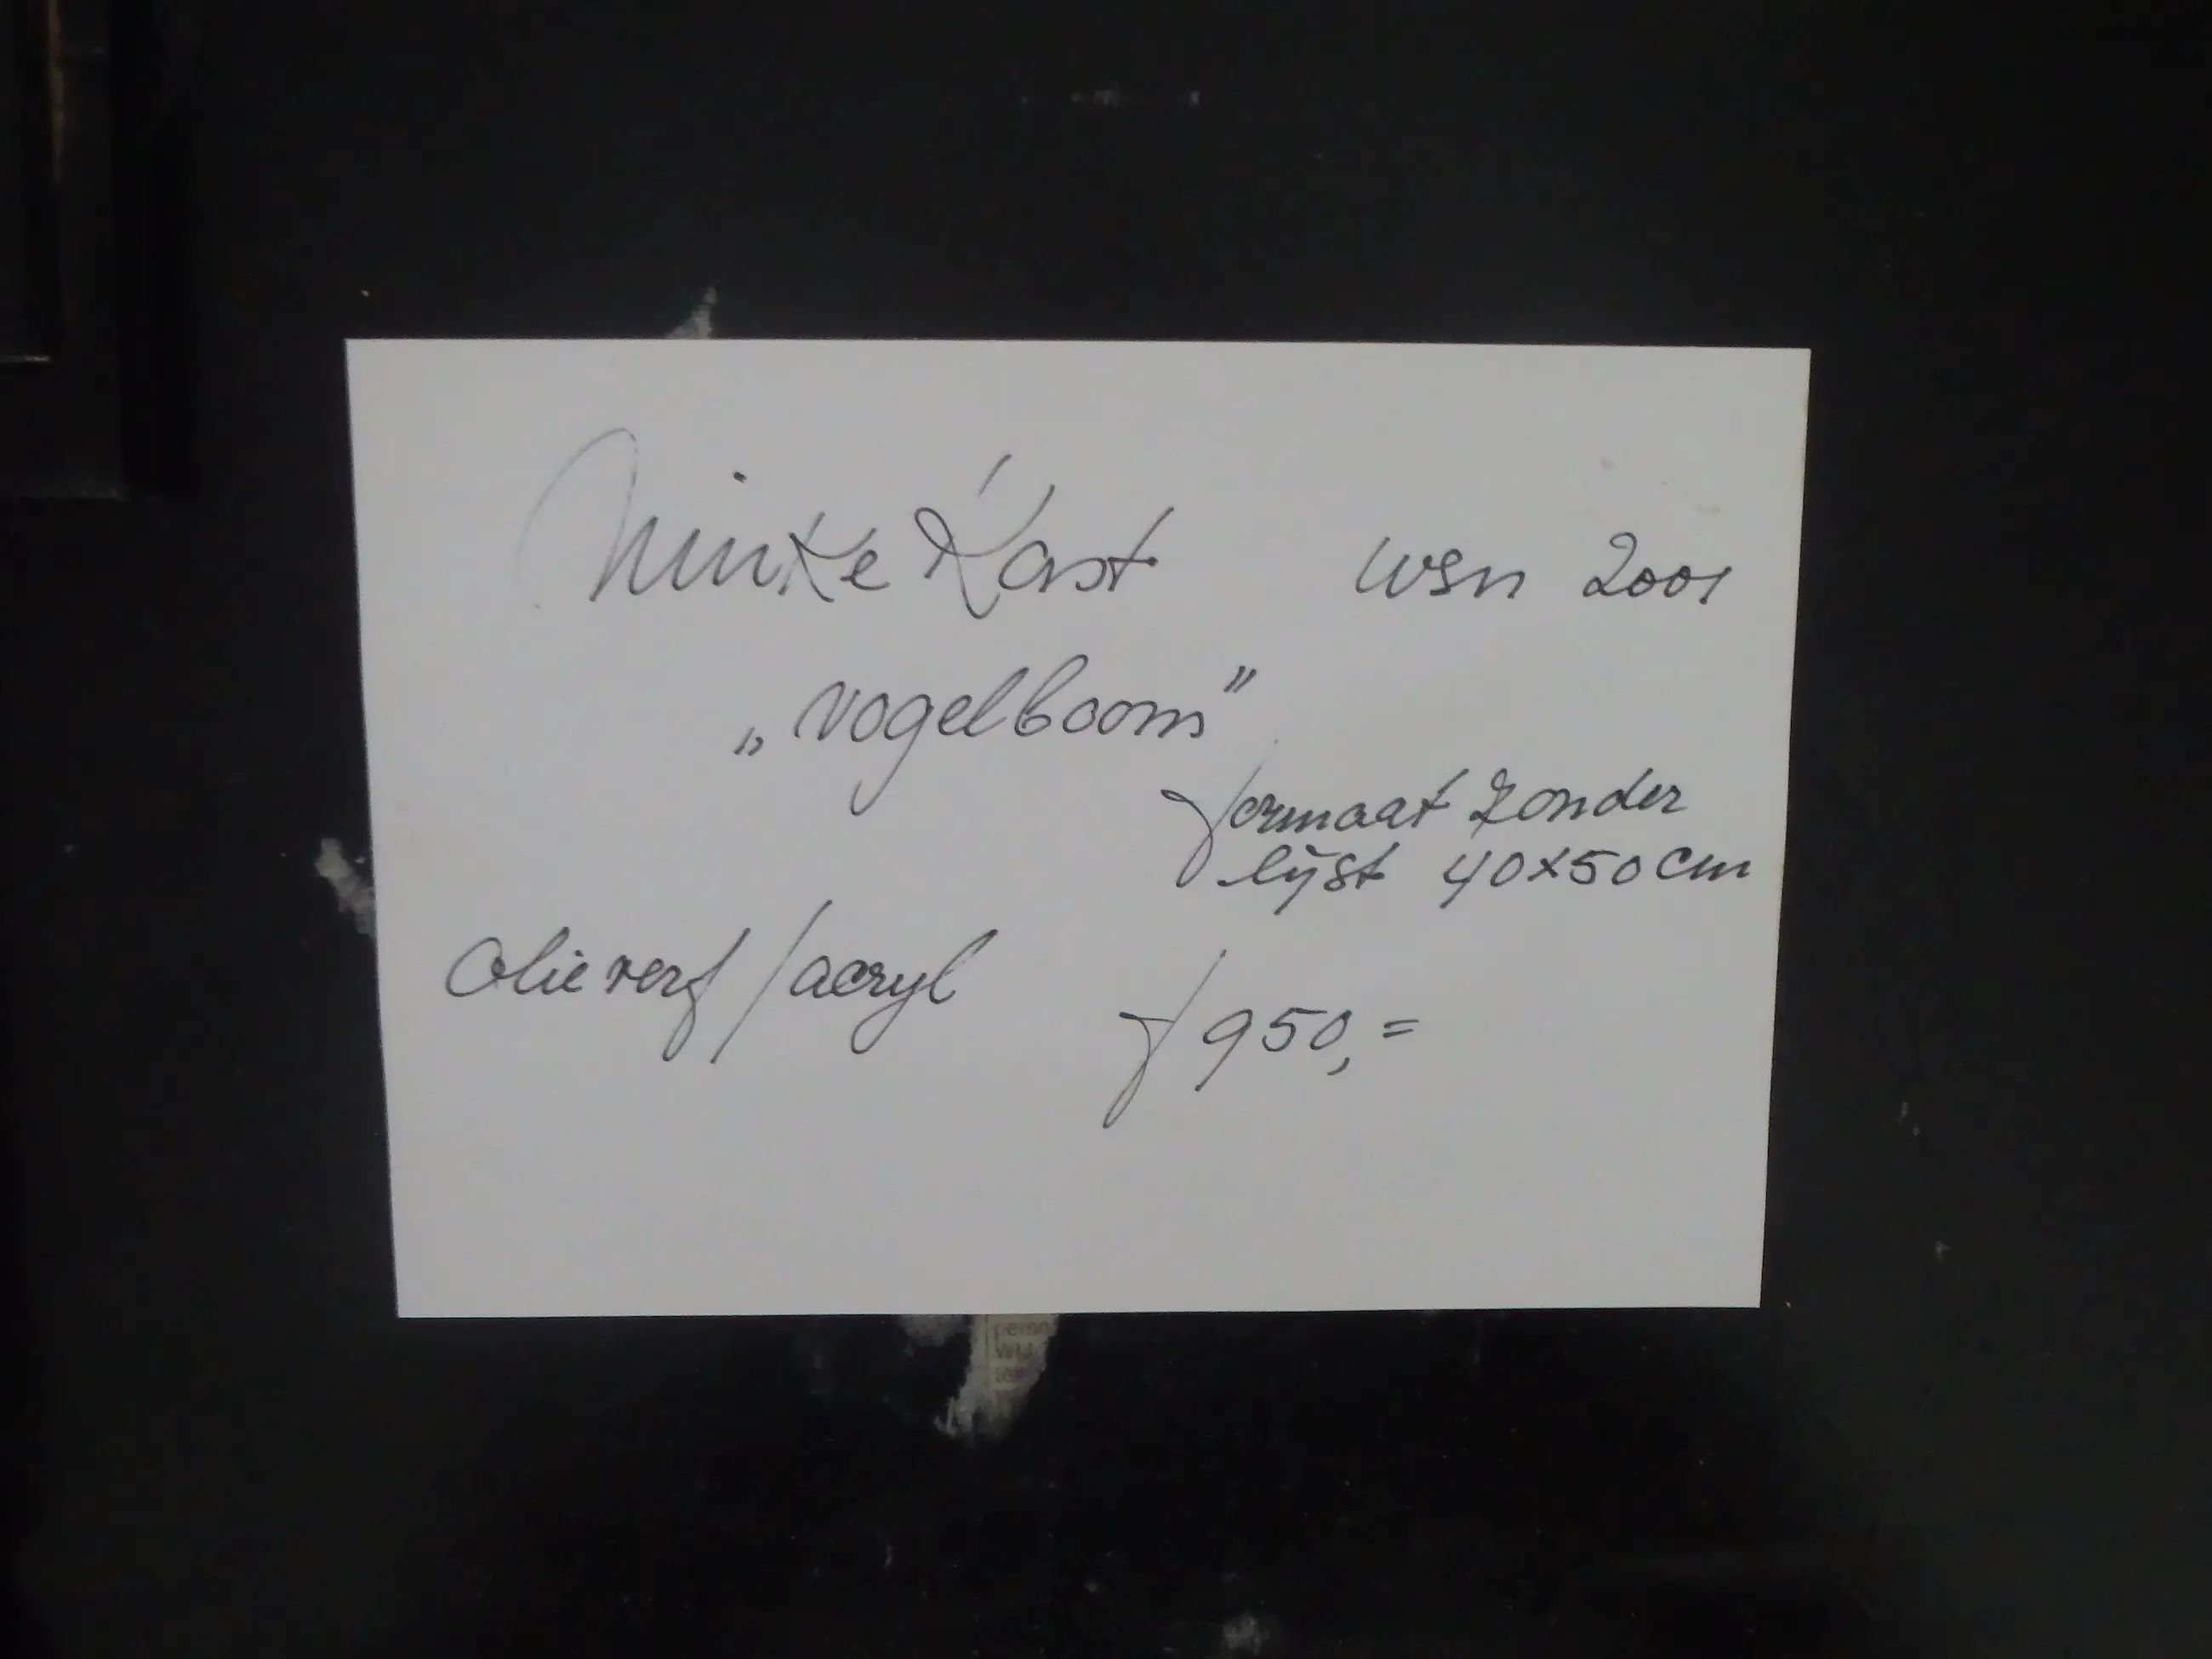 Ninke Kast wsn 2001
„vogelboom”
formaat zonder
lijst 40x50 cm
Olieverf/acryl ƒ 950,=